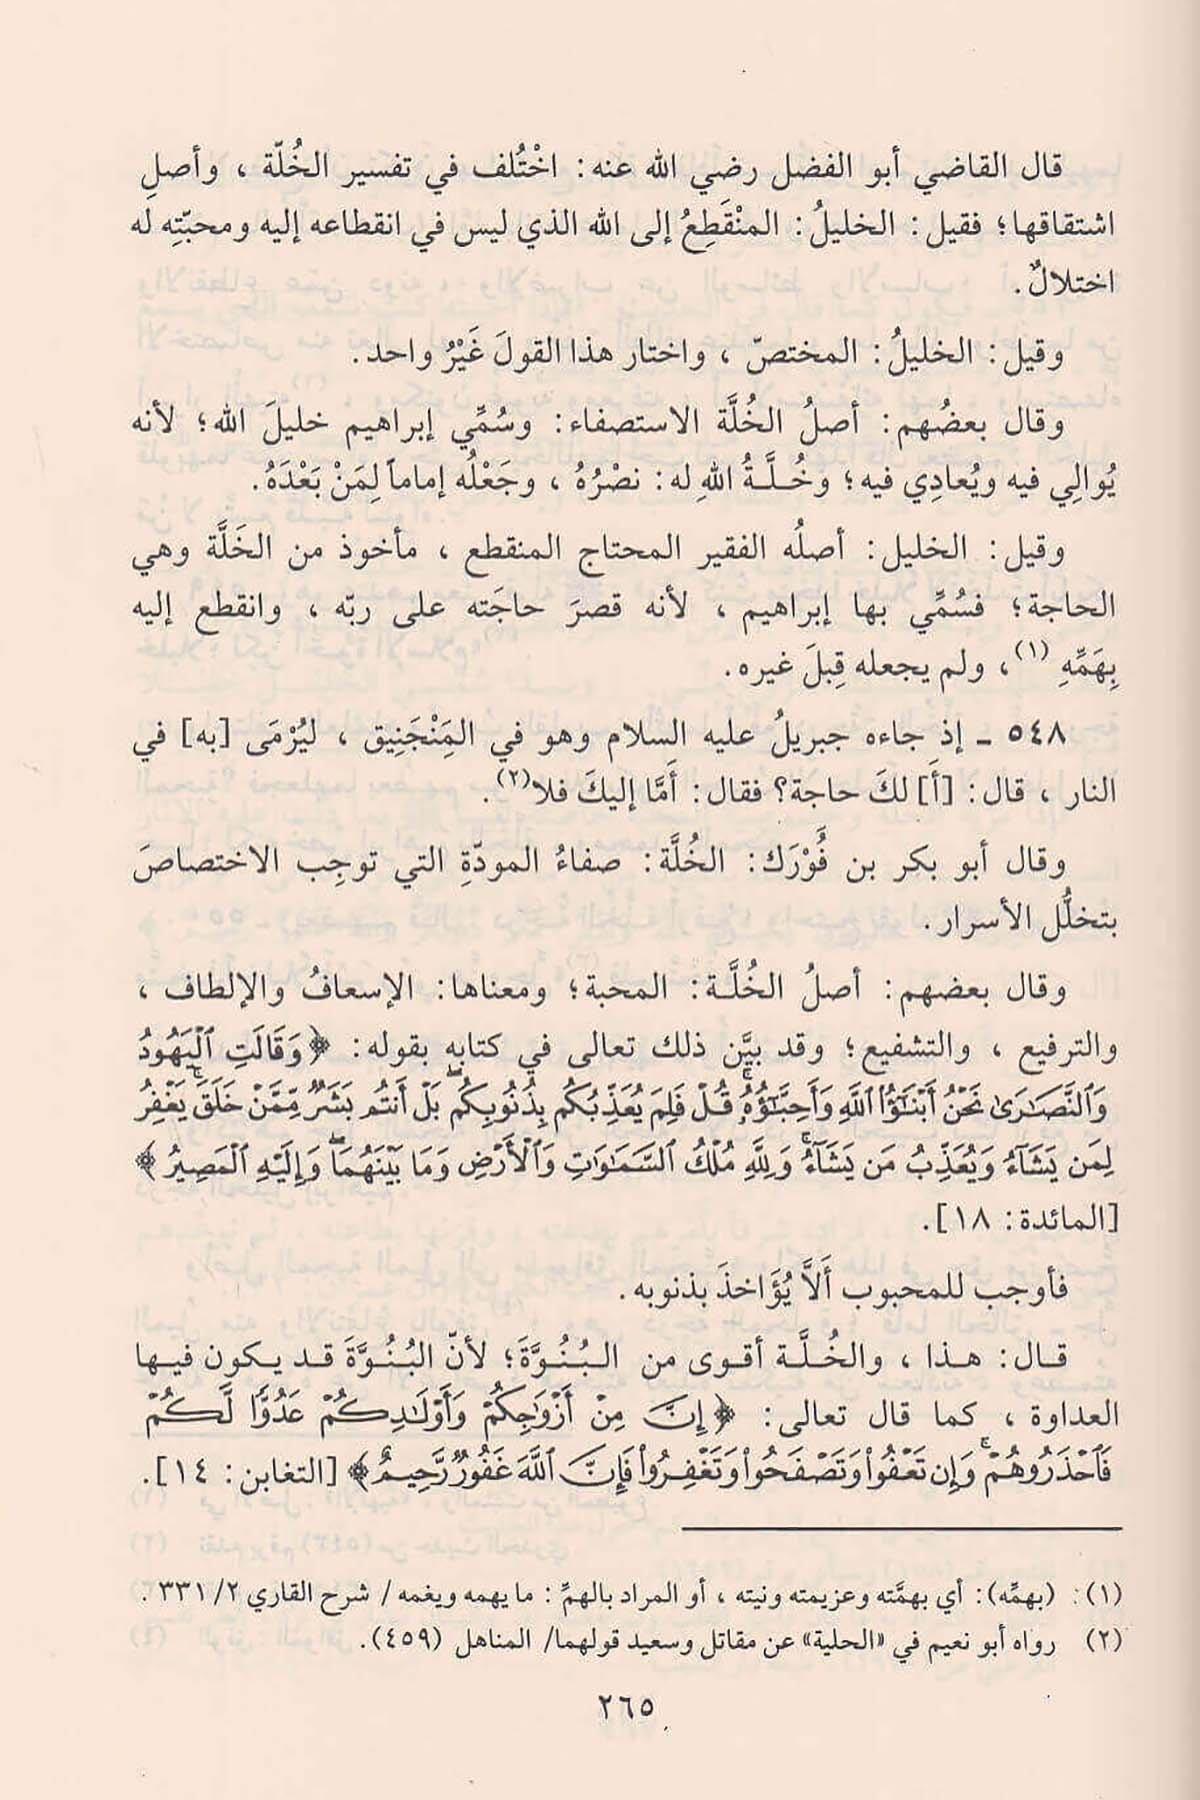 قال القاضي أبو الفضل رضي الله عنه: اخْتُلف في تفسير الخُلّة ، وأصلِ
اشتقاقها؛ فقيل: الخليلُ: المنْقَطِعُ إلى الله الذي ليس في انقطاعه إليه ومحبّتِه له
اختلالٌ.
وقيل: الخليلُ: المختصّ ، واختار هذا القولَ غَيْرُ واحد.
وقال بعضُهم: أصلُ الخُلَّة الاستصفاء: وسُمِّي إبراهيم خليلَ الله؛ لأنه
يُوالِي فيه ويُعادِي فيه؛ وخُـلَّـةُ اللهِ له: نصْرُهُ ، وجَعْلُه إماماً لِمَنْ بَعْدَهُ.
وقيل: الخليل: أصلُه الفقير المحتاج المنقطع ، مأخوذ من الخَلَّة وهي
الحاجة؛ فسُمِّي بها إبراهيم ، لأنه قصرَ حاجَته على ربّه ، وانقطع إليه
بِهَمِّهِ (١)، ولم يجعله قِبلَ غيره.
٥٤٨ ـ إذ جاءه جبريلُ عليه السلام وهو في المِنْجَنِيق ، ليُرْمَى [به] في
النار ، قال: [أَ] لكَ حاجة؟ فقال: أَمَّا إليكَ فلا(٢).
وقال أبو بكر بن فُوْرَك: الخُلَّة: صفاءُ المودّةِ التي توجِب الاختصاصَ
بتخلُّل الأسرار.
وقال بعضهم: أصلُ الخُلَّـة: المحبة؛ ومعناها: الإسعافُ والإلطاف ،
والترفيع ، والتشفيع؛ وقد بيَّن ذلك تعالى في كتابه بقوله: ﴿ وَقَالَتِ ٱلْيَهُودُ
وَٱلنَّصَٰرَىٰ نَحْنُ أَبْنَٰٓؤُا۟ ٱللَّهِ وَأَحِبَّٰٓؤُهُۥ ۚ قُلْ فَلِمَ يُعَذِّبُكُم بِذُنُوبِكُم ۖ بَلْ أَنتُم بَشَرٌ مِّمَّنْ خَلَقَ ۚ يَغْفِرُ
لِمَن يَشَآءُ وَيُعَذِّبُ مَن يَشَآءُ ۚ وَلِلَّهِ مُلْكُ ٱلسَّمَٰوَٰتِ وَٱلْأَرْضِ وَمَا بَيْنَهُمَا ۖ وَإِلَيْهِ ٱلْمَصِيرُ ﴾
[المائدة: ١٨].
فأوجب للمحبوب أَلاَّ يُؤَاخذَ بذنوبه.
قـال: هـذا ، والخُـلَّـة أقوى من الـبُـنُـوَّةَ؛ لأنّ البُـنُـوَّةَ قـد يـكون فيـها
العداوة ، كما قال تعالى: ﴿ إِنَّ مِنْ أَزْوَٰجِكُمْ وَأَوْلَٰدِكُمْ عَدُوًّا لَّكُمْ
فَٱحْذَرُوهُمْ ۚ وَإِن تَعْفُوا۟ وَتَصْفَحُوا۟ وَتَغْفِرُوا۟ فَإِنَّ ٱللَّهَ غَفُورٌ رَّحِيمٌ ﴾ [التغابن: ١٤].
(١): (بهمِّه): أي بهمَّته وعزيمته ونيته ، أو المراد بالهمِّ: ما يهمه ويغمه/ شرح القاري ٢/ ٣٣١.
(٢) رواه أبو نعيم في «الحلية» عن مقاتل وسعيد قولهما/ المناهل (٤٥٩).
٢٦٥